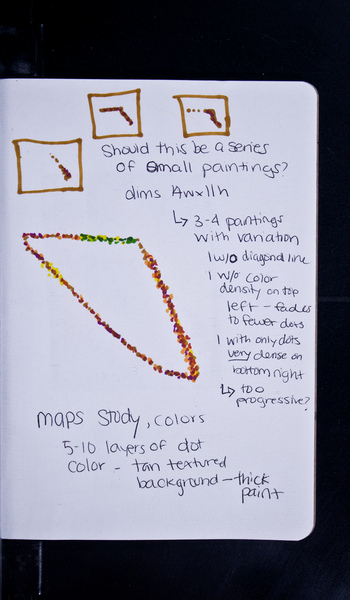 Should this be a series
of small paintings?
dims 4wx11h
↳ 3-4 paintings
with variation
1 w/o diagonal line
1 w/o color
density on top
left - fades
to fewer dots
1 with only dots
very dense on
bottom right
↳ too
progressive?
maps study, colors
5-10 layers of dot
color - tan textured
background - thick
paint